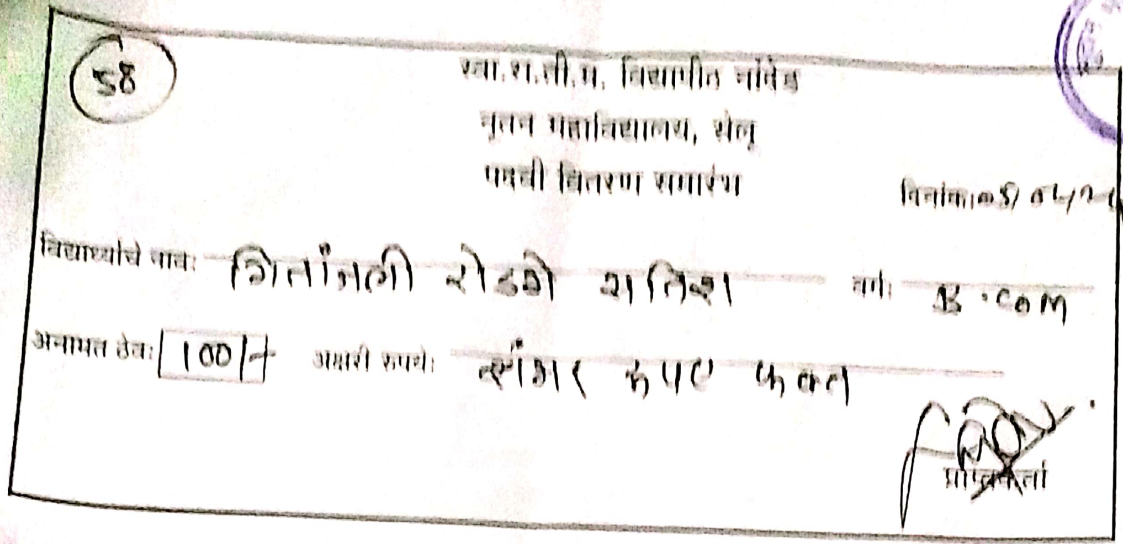 58
स्वा.रा.ती.म. विद्यापीठ नांदेड
नुतन महाविद्यालय, सेलू
पदवी वितरण समारंभ
दिनांकः
विद्यार्थ्याचे नावः गितांजली रोडगे सतिश वर्गः B.COM
अनामत ठेवः 100/- अक्षरी रुपयेः शंभर रुपए फक्त
प्राप्तकर्ता